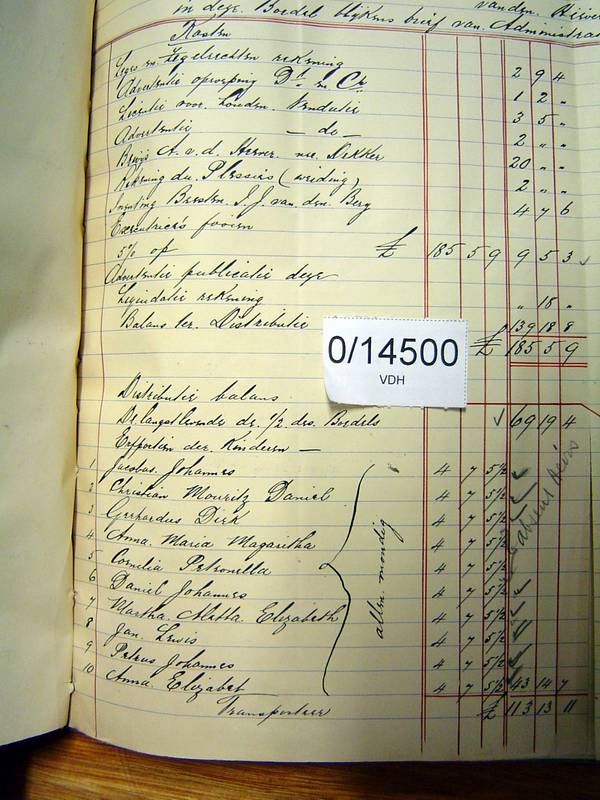 in deze. Boedel Wijkens brief van. Administrat
Kosten
Leges en Zegelrechten rekening 2 9 4
Advertentie oproeping Dt. en Cr. 1 2 „
Licentie voor. Vendutie 3 5 „
Advertentie — do — 2 „ „
A. v. d. Heever. nee. Dekker 20 „ „
Rekening du. Plessies (weiding) 2 „ „
Besten. S. J. van. den. Berg 4 7 6
Executrice's fooien
5% op £ 185 5 9 9 5 3
Advertentie publicatie deze
Liquidatie rekening „ 18 „
Balans ter. Distributie 139 18 8
£ 185 5 9
0/14500
VDH
Distributie balans
De langstlevende de. 1/2 des. Boedels 69 19 4
Erfportien der. Kinderen —
1 Jacobus. Johannes 4 7 5 1/2
2 Christian Mouritz Daniel 4 7 5 1/2
3 Gerhardus Dirk 4 7 5 1/2
4 Anna. Maria Magaritha 4 7 5 1/2
5 Cornelia Petronella 4 7 5 1/2
6 Daniel Johannes 4 7 5 1/2
7 Martha. Aletta. Elizabeth 4 7 5 1/2
8 Jan. Lewis 4 7 5 1/2
9 Petrus Johannes 4 7 5 1/2
10 Anna Elizabet 4 7 5 1/2 43 14 7
allen. mondig
Transporteer £ 113 13 11